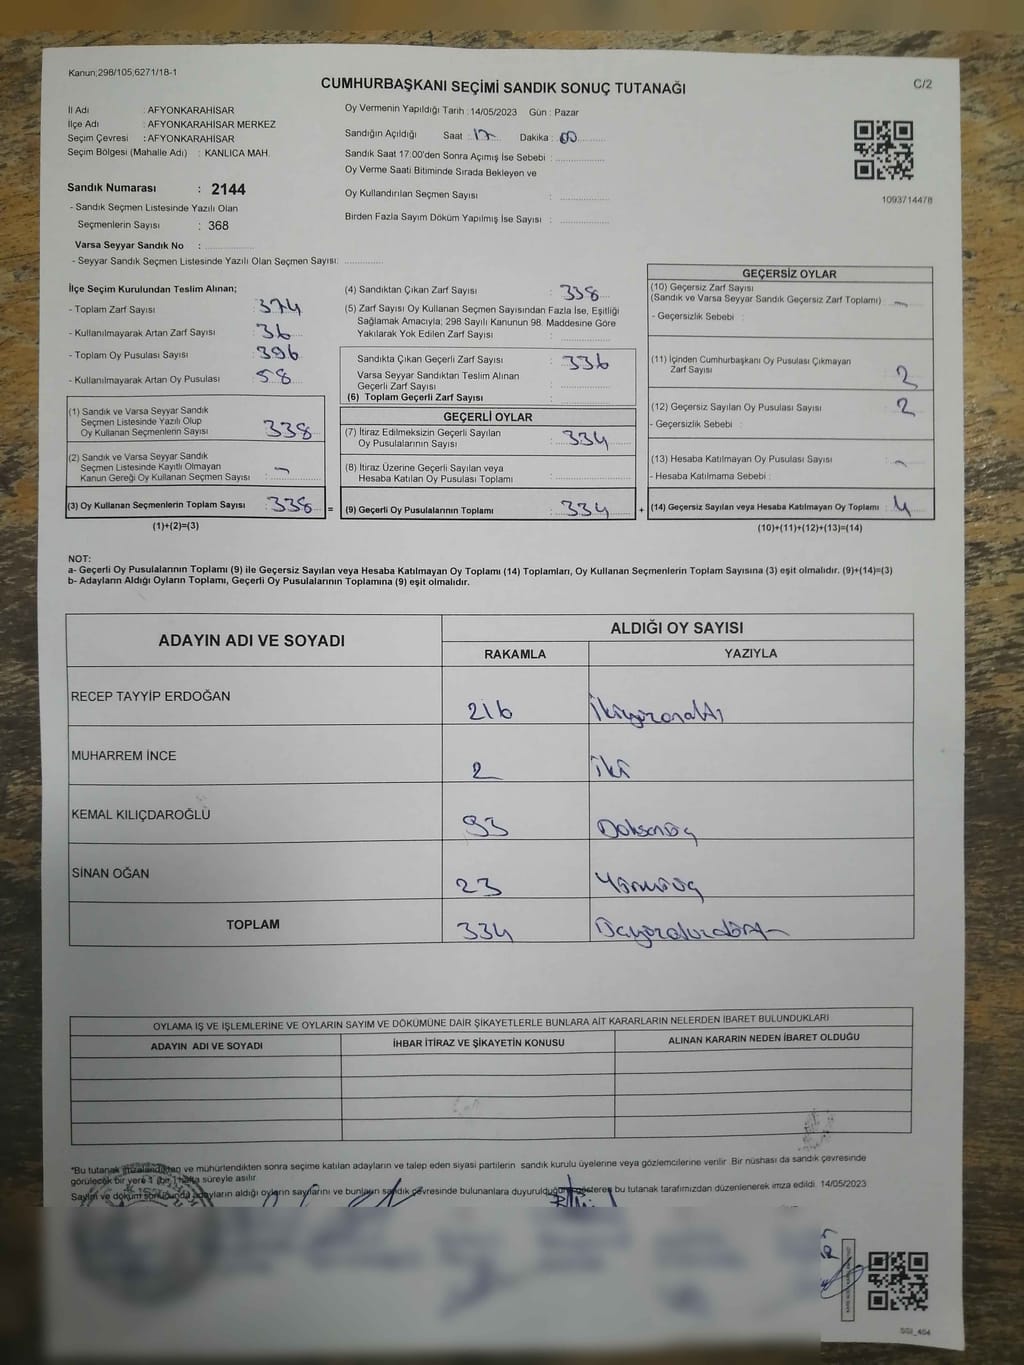 Kanun;298/105;6271/18-1
CUMHURBAŞKANI SEÇİMİ SANDIK SONUÇ TUTANAĞI
C/2
İl Adı : AFYONKARAHİSAR
İlçe Adı : AFYONKARAHİSAR MERKEZ
Seçim Çevresi : AFYONKARAHİSAR
Seçim Bölgesi (Mahalle Adı) : KANLICA MAH.
Oy Vermenin Yapıldığı Tarih : 14/05/2023 Gün : Pazar
Sandığın Açıldığı Saat : 17 Dakika : 00
Sandık Saat 17:00'den Sonra Açımış İse Sebebi :
Oy Verme Saati Bitiminde Sırada Bekleyen ve
Oy Kullandırılan Seçmen Sayısı :
Birden Fazla Sayım Döküm Yapılmış İse Sayısı :
1093714478
Sandık Numarası : 2144
- Sandık Seçmen Listesinde Yazılı Olan
Seçmenlerin Sayısı : 368
Varsa Seyyar Sandık No :
- Seyyar Sandık Seçmen Listesinde Yazılı Olan Seçmen Sayısı:
İlçe Seçim Kurulundan Teslim Alınan;
- Toplam Zarf Sayısı : 374
- Kullanılmayarak Artan Zarf Sayısı : 36
- Toplam Oy Pusulası Sayısı : 396
- Kullanılmayarak Artan Oy Pusulası : 58
(1) Sandık ve Varsa Seyyar Sandık
Seçmen Listesinde Yazılı Olup
Oy Kullanan Seçmenlerin Sayısı : 338
(2) Sandık ve Varsa Seyyar Sandık
Seçmen Listesinde Kayıtlı Olmayan
Kanun Gereği Oy Kullanan Seçmen Sayısı : -
(3) Oy Kullanan Seçmenlerin Toplam Sayısı : 338 =
(1)+(2)=(3)
(4) Sandıktan Çıkan Zarf Sayısı : 338
(5) Zarf Sayısı Oy Kullanan Seçmen Sayısından Fazla İse, Eşitliği
Sağlamak Amacıyla; 298 Sayılı Kanunun 98. Maddesine Göre
Yakılarak Yok Edilen Zarf Sayısı :
Sandıkta Çıkan Geçerli Zarf Sayısı : 336
Varsa Seyyar Sandıktan Teslim Alınan
Geçerli Zarf Sayısı :
(6) Toplam Geçerli Zarf Sayısı :
GEÇERLİ OYLAR
(7) İtiraz Edilmeksizin Geçerli Sayılan
Oy Pusulalarının Sayısı : 334
(8) İtiraz Üzerine Geçerli Sayılan veya
Hesaba Katılan Oy Pusulası Toplamı :
(9) Geçerli Oy Pusulalarının Toplamı : 334 +
GEÇERSİZ OYLAR
(10) Geçersiz Zarf Sayısı
(Sandık ve Varsa Seyyar Sandık Geçersiz Zarf Toplamı) : -
- Geçersizlik Sebebi :
(11) İçinden Cumhurbaşkanı Oy Pusulası Çıkmayan
Zarf Sayısı : 2
(12) Geçersiz Sayılan Oy Pusulası Sayısı : 2
- Geçersizlik Sebebi :
(13) Hesaba Katılmayan Oy Pusulası Sayısı : -
- Hesaba Katılmama Sebebi :
(14) Geçersiz Sayılan veya Hesaba Katılmayan Oy Toplamı : 4
(10)+(11)+(12)+(13)=(14)
NOT:
a- Geçerli Oy Pusulalarının Toplamı (9) ile Geçersiz Sayılan veya Hesaba Katılmayan Oy Toplamı (14) Toplamları, Oy Kullanan Seçmenlerin Toplam Sayısına (3) eşit olmalıdır. (9)+(14)=(3)
b- Adayların Aldığı Oyların Toplamı, Geçerli Oy Pusulalarının Toplamına (9) eşit olmalıdır.
ADAYIN ADI VE SOYADI
ALDIĞI OY SAYISI
RAKAMLA YAZIYLA
RECEP TAYYİP ERDOĞAN 216 İkiyüzonaltı
MUHARREM İNCE 2 İki
KEMAL KILIÇDAROĞLU 93 Doksanüç
SİNAN OĞAN 23 Yirmiüç
TOPLAM 334 Üçyüzotuzdört
OYLAMA İŞ VE İŞLEMLERİNE VE OYLARIN SAYIM VE DÖKÜMÜNE DAİR ŞİKAYETLERLE BUNLARA AİT KARARLARIN NELERDEN İBARET BULUNDUKLARI
ADAYIN ADI VE SOYADI İHBAR İTİRAZ VE ŞİKAYETİN KONUSU ALINAN KARARIN NEDEN İBARET OLDUĞU
*Bu tutanak imzalandıkten ve mühürlendikten sonra seçime katılan adayların ve talep eden siyasi partilerin sandık kurulu üyelerine veya gözlemcilerine verilir. Bir nüshası da sandık çevresinde
görülecek bir yere 1 (bir) hafta süreyle asılır.
Sayım ve döküm sonucunda adayların aldığı oyların sayılarını ve bunların sandık çevresinde bulunanlara duyurulduğunu gösteren bu tutanak tarafımızdan düzenlenerek imza edildi. 14/05/2023